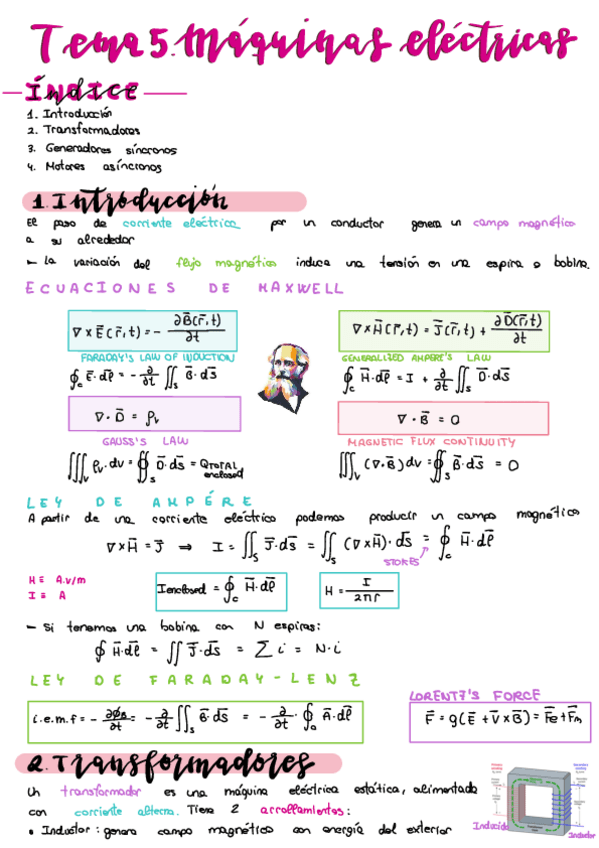 Tema 5. Máquinas eléctricas
ÍNDICE
1. Introducción
2. Transformadores
3. Generadores síncronos
4. Motores asíncronos
1. Introducción
El paso de corriente eléctrica por un conductor genera un campo magnético
a su alrededor
- La variación del flujo magnético induce una tensión en una espira o bobina.
ECUACIONES DE MAXWELL
∇ × E⃗(r⃗,t) = - ∂B⃗(r⃗,t)/∂t
FARADAY'S LAW OF INDUCTION
∮c E⃗·dl⃗ = - ∂/∂t ∬s B⃗·ds⃗
∇ × H⃗(r⃗,t) = J⃗(r⃗,t) + ∂D⃗(r⃗,t)/∂t
GENERALIZED AMPERE'S LAW
∮c H⃗·dl⃗ = I + ∂/∂t ∬s D⃗·ds⃗
∇ · D⃗ = ρv
GAUSS'S LAW
∭v ρv·dv = ∯s D⃗·ds⃗ = QTOTAL enclosed
∇ · B⃗ = 0
MAGNETIC FLUX CONTINUITY
∭v (∇·B⃗) dv = ∯s B⃗·ds⃗ = 0
LEY DE AMPÉRE
A partir de una corriente eléctrica podemos producir un campo magnético
∇×H⃗ = J⃗ ⇒ I = ∬s J⃗·ds⃗ = ∬s (∇×H⃗)·ds⃗ = ∮c H⃗·dl⃗
STOKES
H ≡ A.v/m
I ≡ A
Ienclosed = ∮c H⃗·dl⃗
H = I/2πr
- Si tenemos una bobina con N espiras:
∮ H⃗·dl⃗ = ∬ J⃗·ds⃗ = Σ i = N·i
LEY DE FARADAY-LENZ
i.e.m.f = - ∂ϕB/∂t = - ∂/∂t ∬s B⃗·ds⃗ = - ∂/∂t · ∮c A⃗·dl⃗
LORENTZ'S FORCE
F⃗ = q(E⃗ + v⃗×B⃗) = F⃗e + F⃗m
2. Transformadores
Un transformador es una máquina eléctrica estática, alimentada
con corriente alterna. Tiene 2 arrollamientos:
• Inductor: genera campo magnético con energía del exterior
Inducido
Inductor